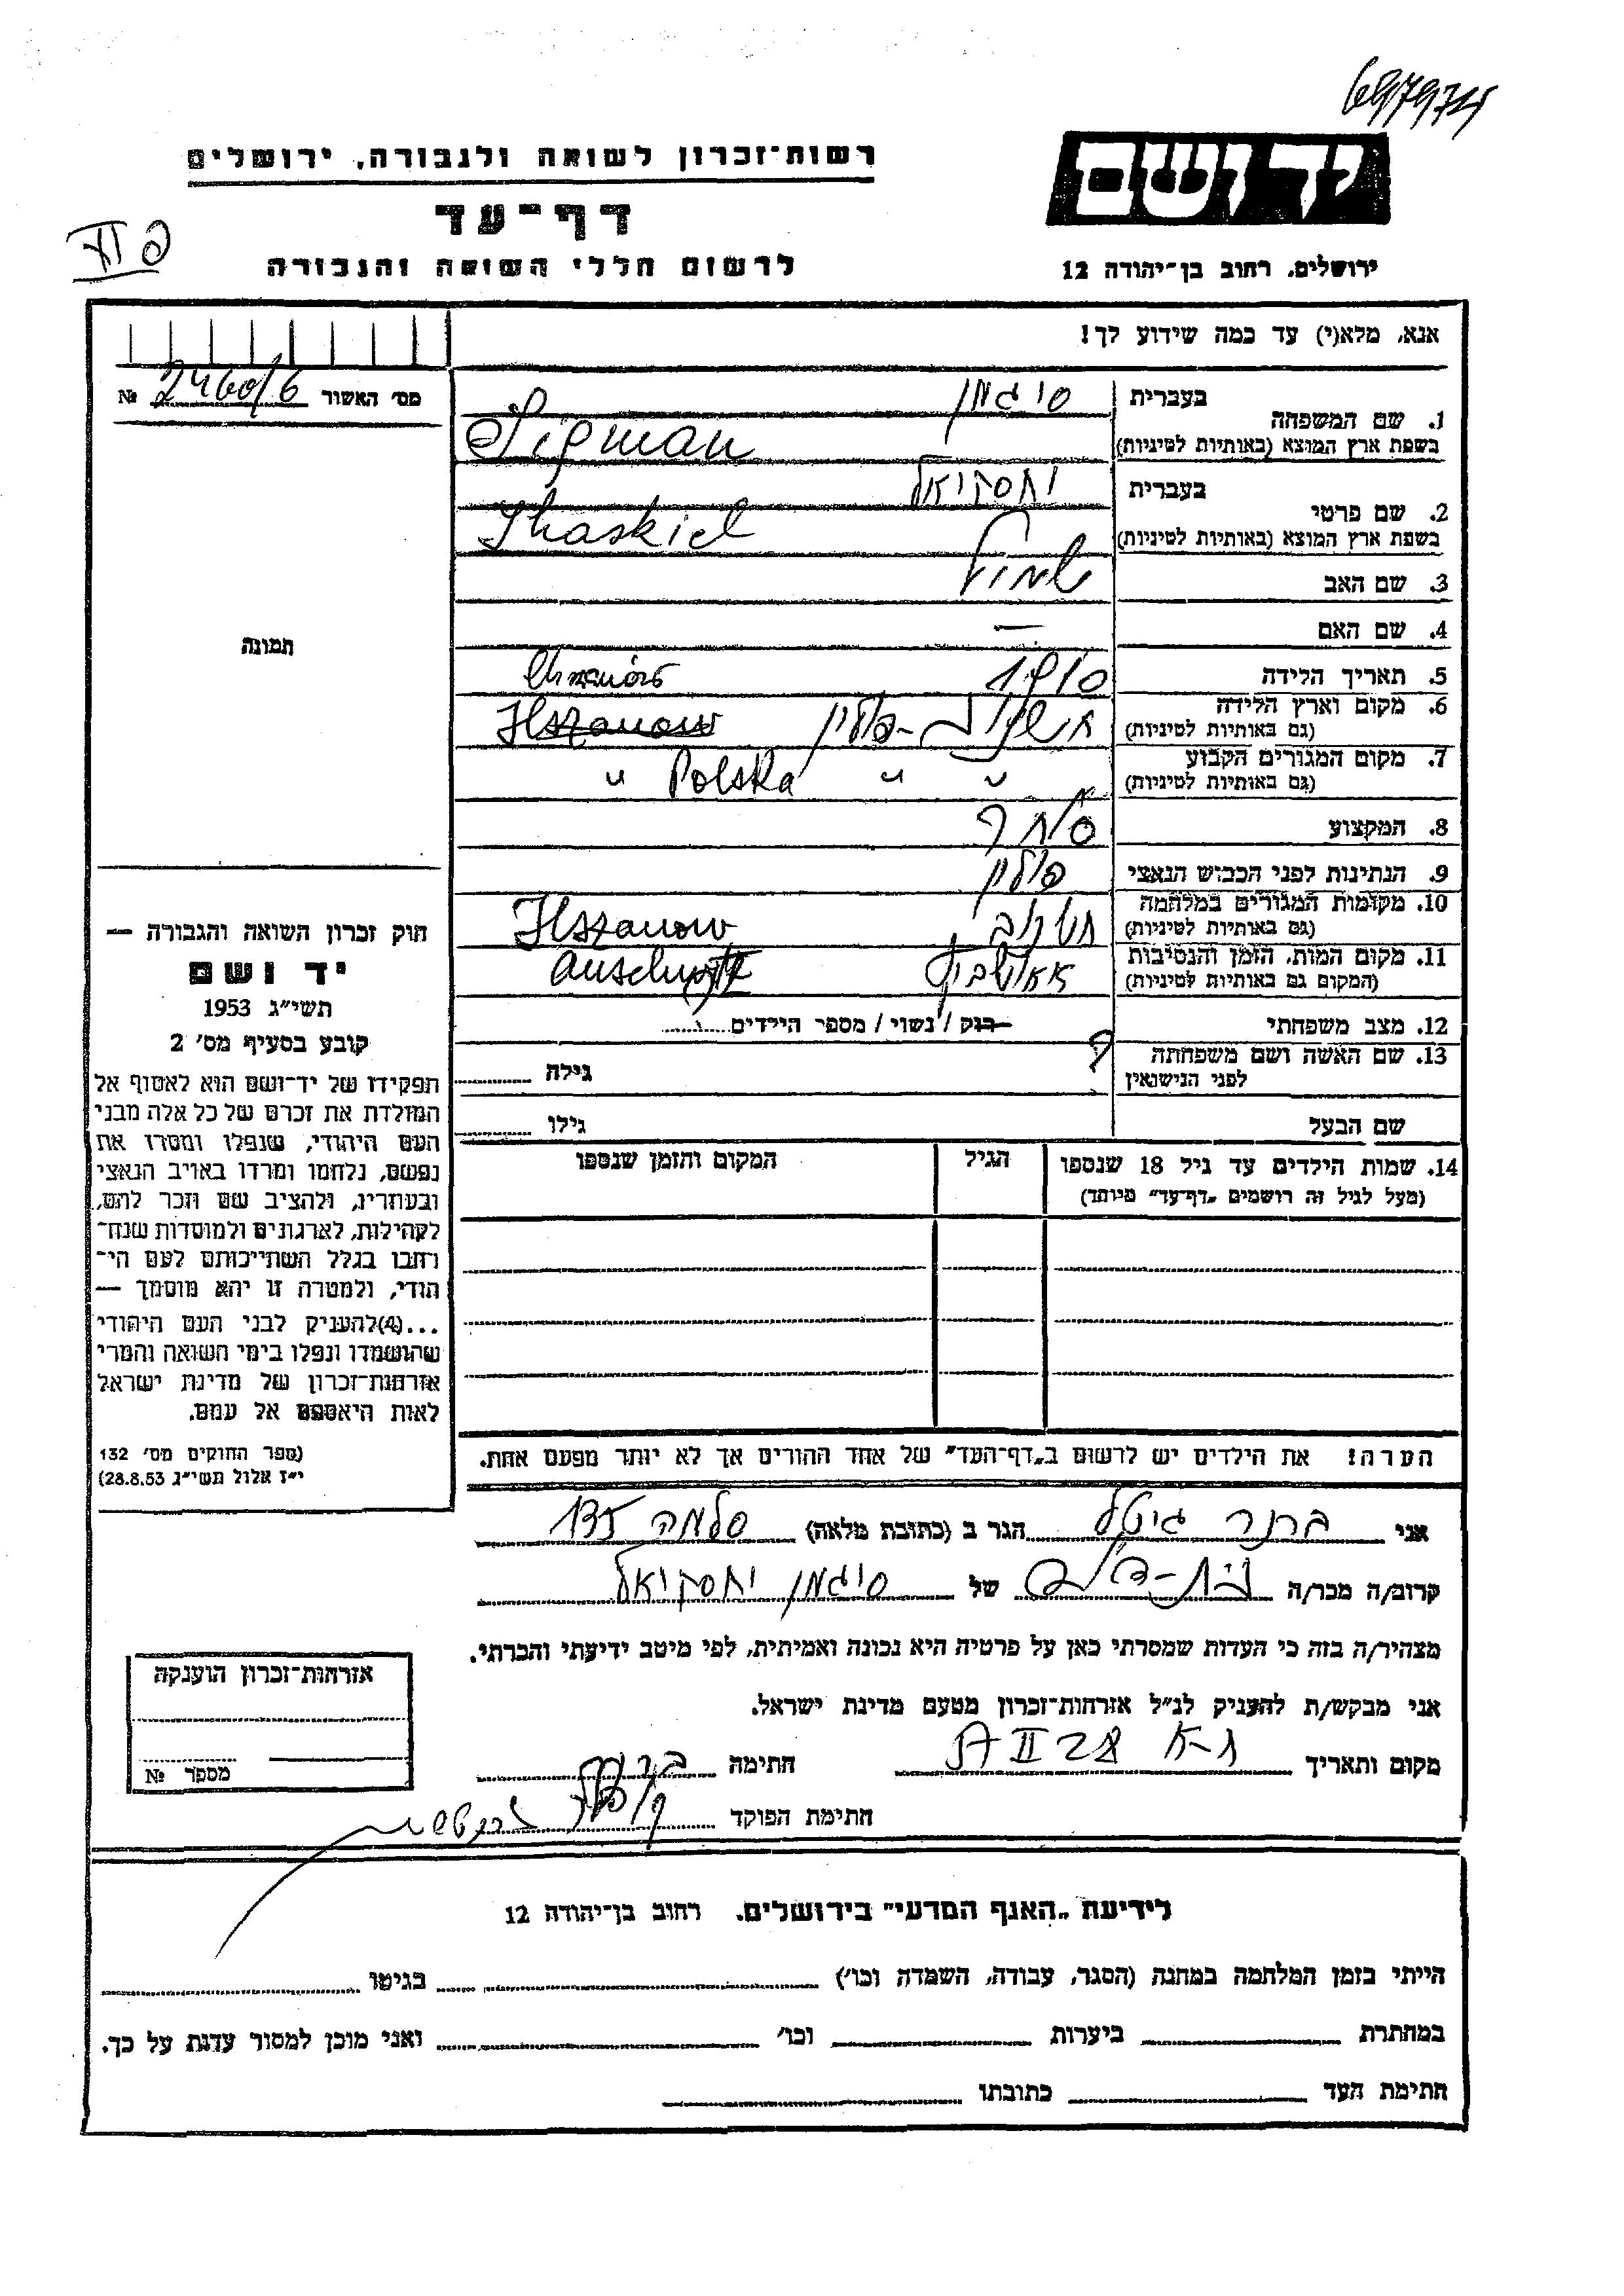 6979745
רשות־זכרון לשואה ולגבורה, ירושלים
יד ושם
דף־עד
לרשום חללי השואה והגבורה
ירושלים, רחוב בן־יהודה 12
אנא, מלא(י) עד כמה שידוע לך!
מס׳ האשור № 2460/6
1. שם המשפחה
בעברית סיגמן
בשפת ארץ המוצא (באותיות לטיניות) Sigman
2. שם פרטי
בעברית יחסקיאל
בשפת ארץ המוצא (באותיות לטיניות) Ihaskiel
3. שם האב שמואל
4. שם האם —
5. תאריך הלידה 1910
6. מקום וארץ הלידה חשנוב-פולין Chrzanów
(גם באותיות לטיניות) Hszanow
7. מקום המגורים הקבוע " " Polska "
(גם באותיות לטיניות)
8. המקצוע סוחר
9. הנתינות לפני הכבוש הנאצי פולין
10. מקומות המגורים במלחמה חשנוב Hszanow
(גם באותיות לטיניות)
11. מקום המות, הזמן והנסיבות אאושביץ Auschwitz
(המקום גם באותיות לטיניות)
12. מצב משפחתי רוק / נשוי / מספר הילדים
13. שם האשה ושם משפחתה ? גילה
לפני הנישואין
שם הבעל גילו
14. שמות הילדים עד גיל 18 שנספו הגיל המקום והזמן שנספו
(מעל לגיל זה רושמים „דף־עד״ מיוחד)
תמונה
חוק זכרון השואה והגבורה —
יד ושם
תשי״ג 1953
קובע בסעיף מס׳ 2
תפקידו של יד־ושם הוא לאסוף אל
המולדת את זכרם של כל אלה מבני
העם היהודי, שנפלו ומסרו את
נפשם, נלחמו ומרדו באויב הנאצי
ובעוזריו, ולהציב שם וזכר להם,
לקהילות, לארגונים ולמוסדות שנח־
רבו בגלל השתייכותם לעם הי־
הודי, ולמטרה זו יהא מוסמך —
...(4)להעניק לבני העם היהודי
שהושמדו ונפלו בימי השואה והמרי
אזרחות־זכרון של מדינת ישראל
לאות היאספם אל עמם.
(ספר החוקים מס׳ 132
י״ז אלול תשי״ג 28.8.53)
הערה! את הילדים יש לרשום ב„דף־העד״ של אחד ההורים אך לא יותר מפעם אחת.
אני ברנר גיטל הגר ב (כתובת מלאה) סלמה 135
קרוב/ה מכר/ה בת-דוד של סיגמן יחסקיאל
מצהיר/ה בזה כי העדות שמסרתי כאן על פרטיה היא נכונה ואמיתית, לפי מיטב ידיעתי והכרתי.
אני מבקש/ת להעניק לנ״ל אזרחות־זכרון מטעם מדינת ישראל.
מקום ותאריך ת-א חתימה ברנר
חתימת הפוקד
אזרחות־זכרון הוענקה
מספר №
לידיעת „האגף המדעי״ בירושלים, רחוב בן־יהודה 12
הייתי בזמן המלחמה במחנה (הסגר, עבודה, השמדה וכו׳) בגיטו
במחתרת ביערות וכו׳ ואני מוכן למסור עדות על כך.
חתימת העד כתובתו